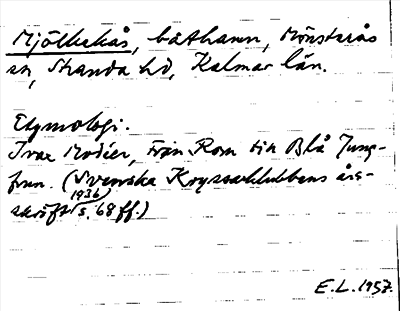 Mjölkekås, båthamn, Mönsterås
sn, Stranda hd, Kalmar län.
Etymologi.
Ivar Modéer, Från Rom till Blå Jung-
frun. (Svenska Kryssarklubbens års-
skrift 1936 s. 68 ff.)
E.L. 1957.